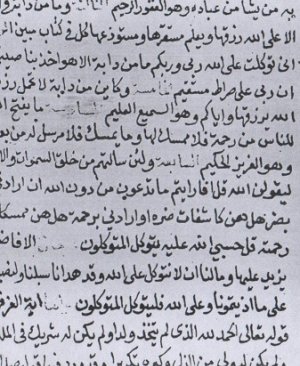 به من يشا من عباده وهو الغفور الرحيم وما من دابة في
الا على الله رزقها ويعلم مستقرها ومستودعها كل في كتاب مبين
اني توكلت على الله ربي وربكم ما من دابة الا هو اخذ بناصيتها
ان ربي على صراط مستقيم الخامسة وكاين من دابة لا تحمل رزقها
الله يرزقها واياكم وهو السميع العليم السادسة ما يفتح الله
للناس من رحمة فلا ممسك لها وما يمسك فلا مرسل له من بعده
وهو العزيز الحكيم السابعة ولئن سالتهم من خلق السموات والا
ليقولن الله قل افرايتم ما تدعون من دون الله ان ارادني
بضر هل هن كاشفات ضره او ارادني برحمة هل هن ممسكات
رحمته قل حسبي الله عليه يتوكل المتوكلون
يزيد عليها وما لنا ان لا نتوكل على الله وقد هدانا سبلنا ولنصبرن
على ما اذيتمونا وعلى الله فليتوكل المتوكلون اية العز
قوله تعالى الحمد لله الذي لم يتخذ ولدا ولم يكن له شريك في الملك
ولم يكن له ولي من الذل وكبره تكبيرا